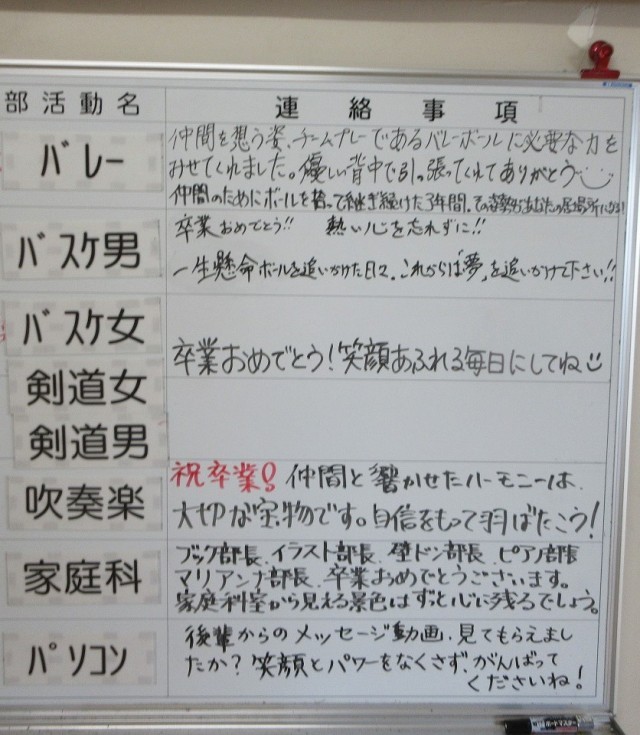 部活動名
連絡事項
バレー
仲間を想う姿、チームプレーであるバレーボールに必要な力を
みせてくれました。優しい背中で引っ張ってくれてありがとう
仲間のためにボールを拾って継ぎ続けた3年間。その姿勢があなたの居場所になる!
バスケ男
卒業おめでとう!! 熱い心を忘れずに!!
一生懸命ボールを追いかけた日々。これからは「夢」を追いかけて下さい!!
バスケ女
卒業おめでとう!笑顔あふれる毎日にしてね
剣道女
剣道男
吹奏楽
祝卒業! 仲間と響かせたハーモニーは、
大切な宝物です。自信をもって羽ばたこう!
家庭科
ブック部長、イラスト部長、壁ドン部長、ピアノ部長
マリアンナ部長、卒業おめでとうございます。
家庭科室から見える景色はずっと心に残るでしょう。
パソコン
後輩からのメッセージ動画、見てもらえまし
たか?笑顔とパワーをなくさず、がんばって
くださいね!
ボードマスター